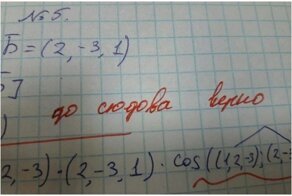 №5.
Б=(2,-3,1)
Б]
до сюдова верно
)
2,-3)·(2,-3,1)·cos((1,2,-3);(2,-